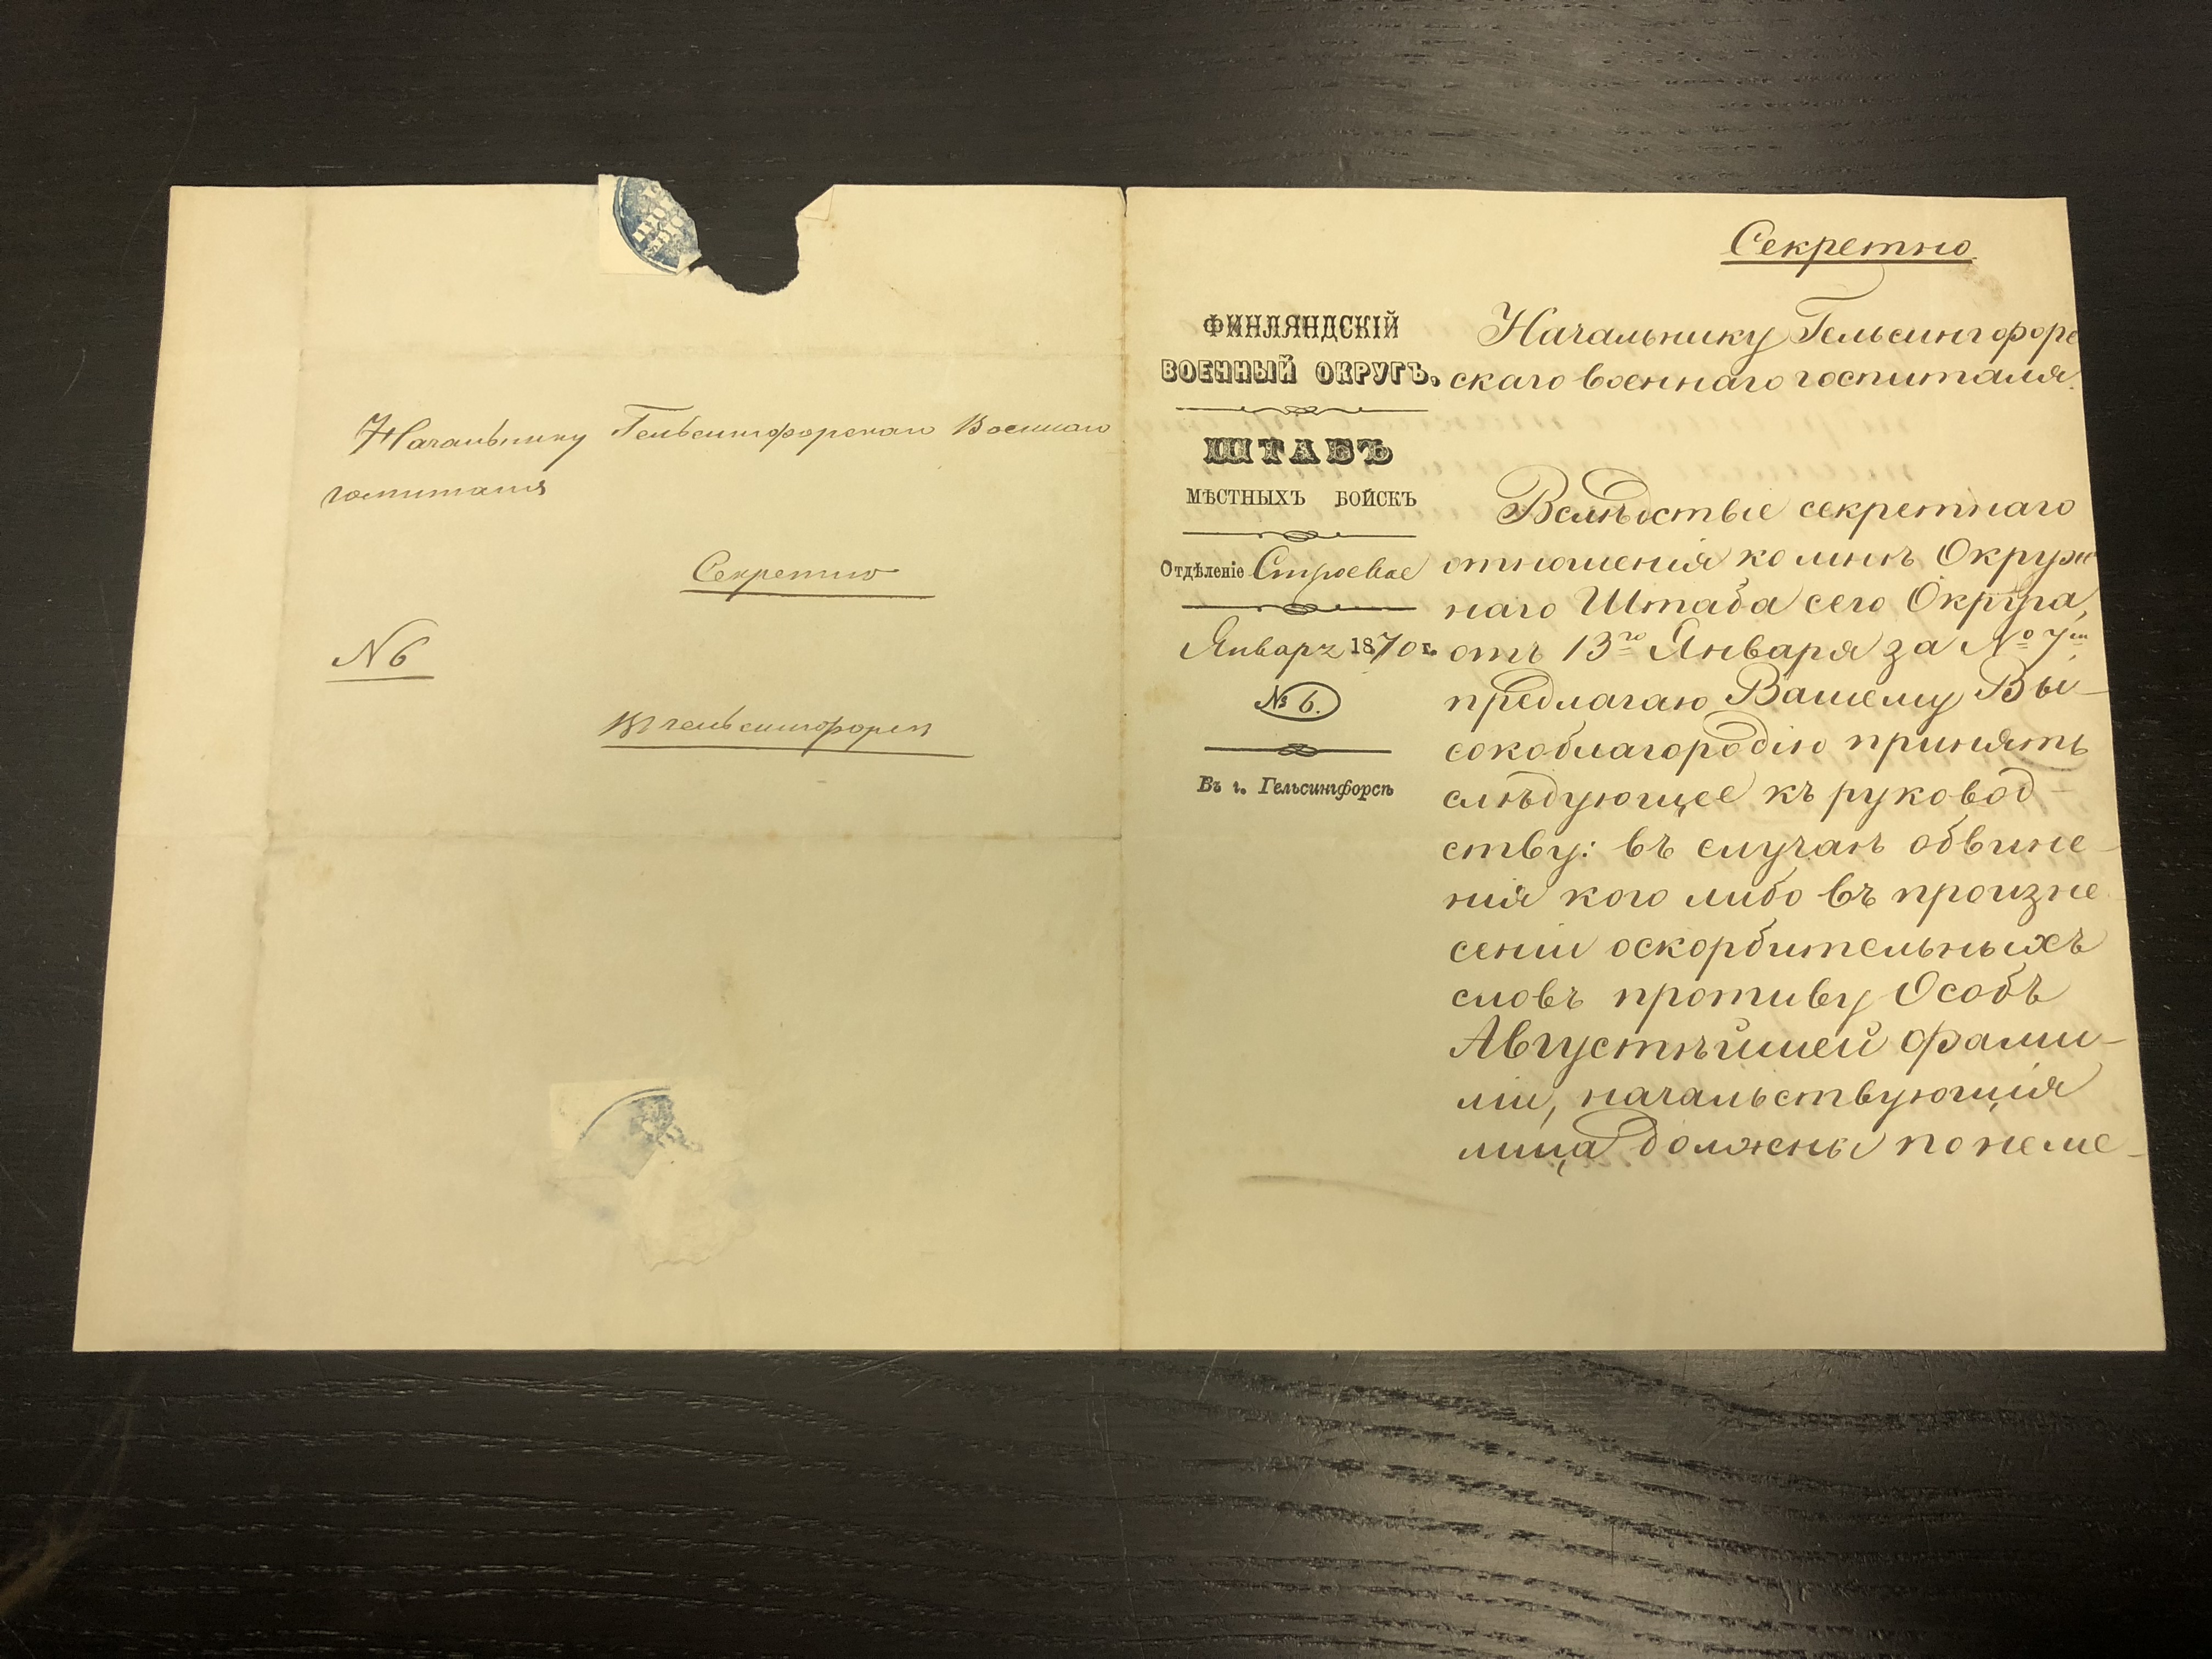 Начальнику Гельсингфорскаго Военнаго
госпиталя
Секретно
N 6
Въ Гельсингфорсѣ
Секретно
ФИНЛЯНДСКІЙ
ВОЕННЫЙ ОКРУГЪ.
ШТАБЪ
МѢСТНЫХЪ ВОЙСКЪ
Отдѣленіе Строевое
Января 1870 г.
№ 6.
Въ г. Гельсингфорсѣ
Начальнику Гельсингфорс
скаго военнаго госпиталя.
Вслѣдствіе секретнаго
отношенія ко мнѣ Окруж
наго Штаба сего Округа,
отъ 13го Января за № 7м
предлагаю Вашему Вы-
сокоблагородію принять
слѣдующее къ руковод-
ству: въ случаѣ обвине-
нія кого либо въ произне
сеніи оскорбительныхъ
словъ противу Особъ
Августѣйшей фами-
ліи, начальствующія
лица должны по неме-